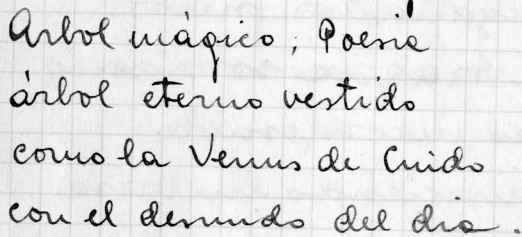 Arbol mágico, Poesia
árbol eterno vestido
como la Venus de Cnido
con el desnudo del dia.